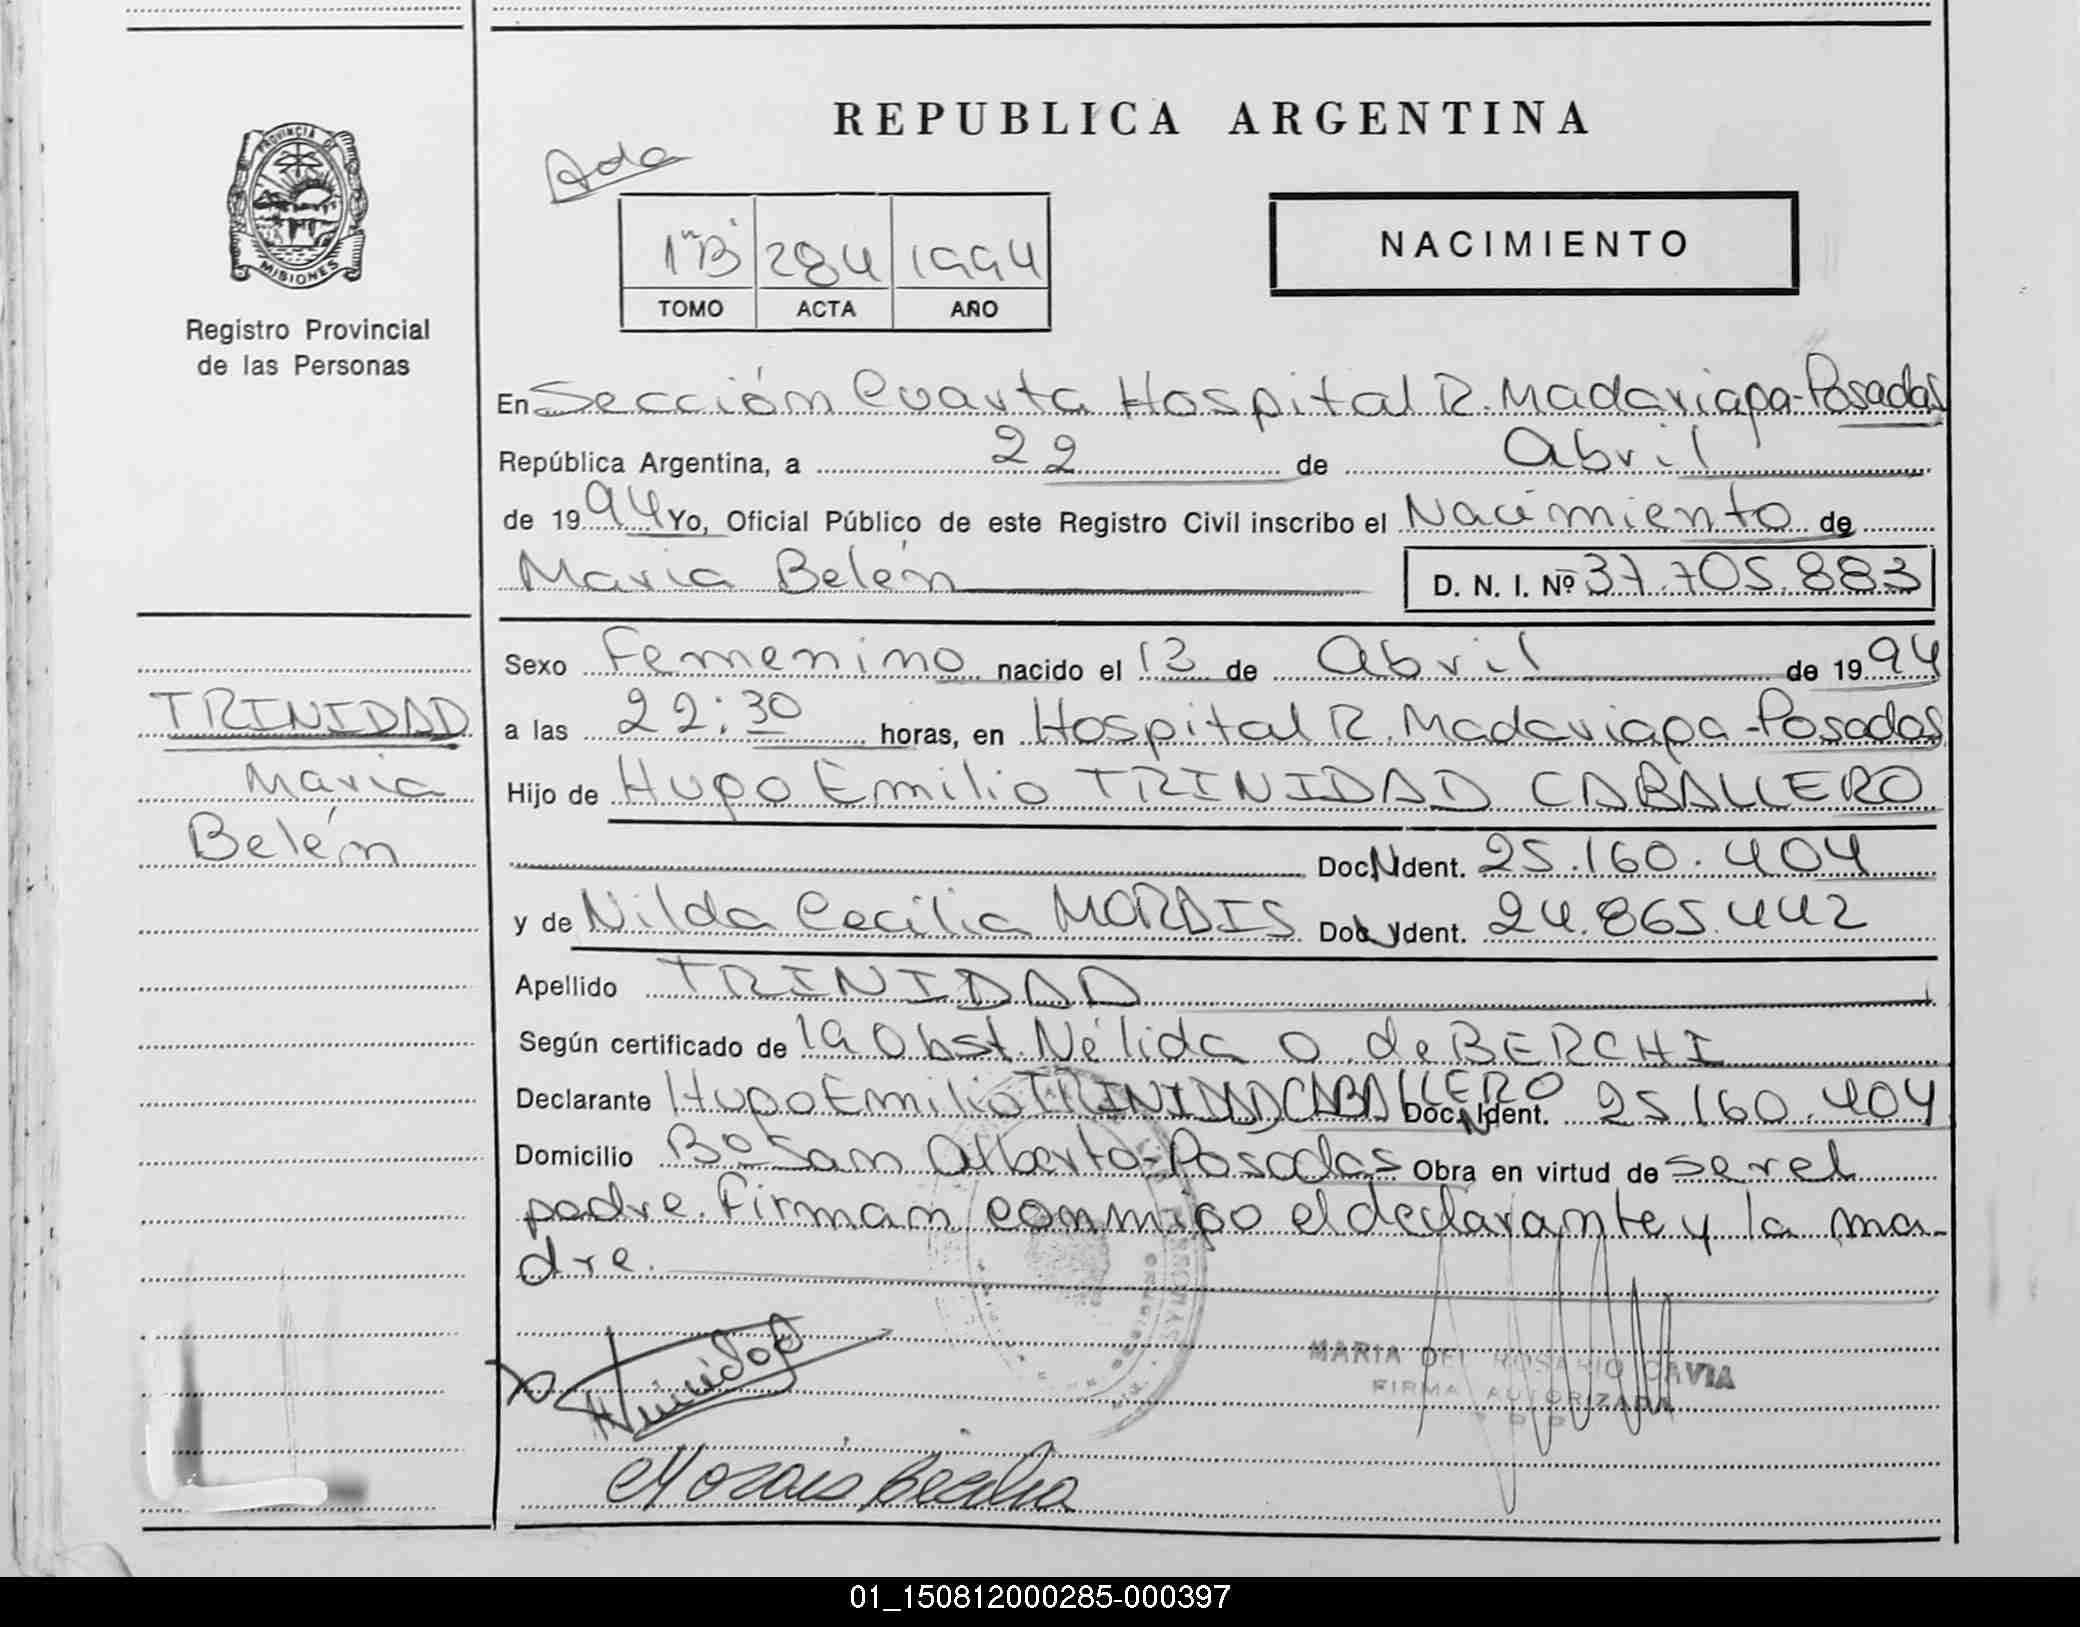 REPUBLICA ARGENTINA
PROVINCIA DE
MISIONES
Registro Provincial
de las Personas
Ada
1º"B" 284 1994
TOMO ACTA AÑO
NACIMIENTO
En Sección Cuarta Hospital R. Madariaga-Posadas
República Argentina, a 22 de Abril
de 1994 Yo, Oficial Público de este Registro Civil inscribo el Nacimiento de
Maria Belén D. N. I. Nº 37.705.883
Sexo Femenino nacido el 13 de Abril de 1994
a las 22:30 horas, en Hospital R. Madariaga-Posadas
Hijo de Hugo Emilio TRINIDAD CABALLERO
Doc. Ident. 25.160.404
y de Nilda Cecilia MORAIS Doc. Ident. 24.865.442
Apellido TRINIDAD
Según certificado de la Obst. Nélida O. de BERCHI
Declarante Hugo Emilio TRINIDAD CABALLERO Doc. Ident. 25.160.404
Domicilio Bº San Alberto-Posadas Obra en virtud de ser el
padre. Firman conmigo el declarante y la ma-
dre.
TRINIDAD
Maria
Belén
H Trinidad
MARIA DEL ROSARIO CAVIA
FIRMA AUTORIZADA
Morais Cecilia
01_150812000285-000397